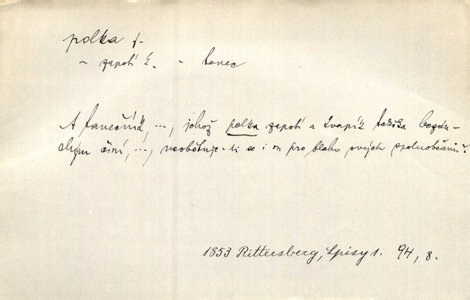 polka f.
~ zapotí k. - tanec
A tanečník ..., jehož polka zapotí a kvapík takřka
činí, ..., neobětuje-li se i on pro blaho svých spoluobčanů?
1853 Rittersberg, Spisy 1. 94, 8.